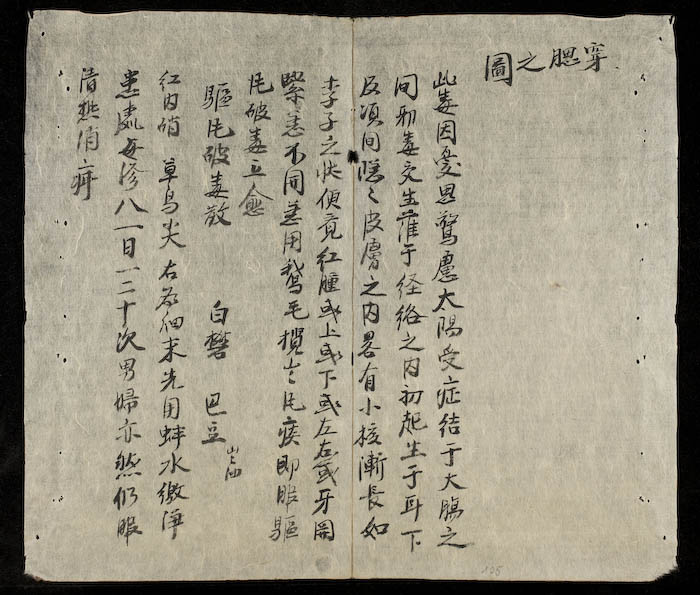 穿腮之圖
此毒因憂思驚慮太陽受症結于大腸之
间邪毒交生薩于经络之内初起生于耳下
及項间隱〻皮膚之内畧有小核漸長如
李子之状便竟红腫或上或下或左右或牙関
緊急不同急用鵝毛攪出毛痰即服驅
毛破毒立愈
驅毛破毒散 白礬 巴豆 去油
红内硝 草烏尖 右为细末先用蚌水繳净
患處每摻八一日一二十次男婦亦然仍服
清热消
105